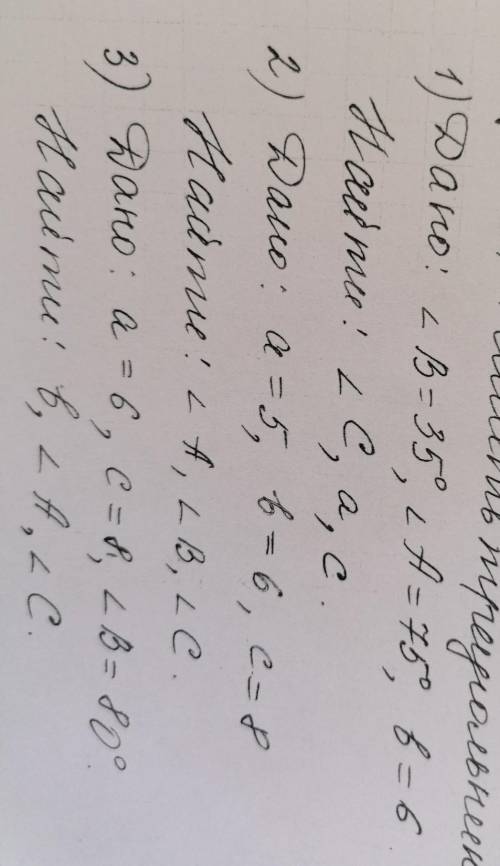 треугольник
1) Дано: ∠B=35°, ∠A=75°, b=6
Найти: ∠C, a, c.
2) Дано: a=5, b=6, c=8
Найти: ∠A, ∠B, ∠C.
3) Дано: a=6, c=8, ∠B=80°
Найти: b, ∠A, ∠C.